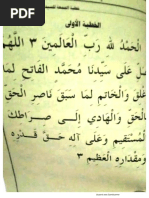 خطبة الجمعة
الخطبة الأولى
الْحَمْدُ لله رَبِّ الْعَالَمِينَ ٣ اللَّهُمَّ
صَلِّ عَلَى سَيِّدِنَا مُحَمَّدٍ الْفَاتِحِ لِمَا
أُغْلِقَ وَالْخَاتِمِ لِمَا سَبَقَ نَاصِرِ الْحَقِّ
بِالْحَقِّ وَالْهَادِي إِلَى صِرَاطِكَ
الْمُسْتَقِيمِ وَعَلَى آلِهِ حَقَّ قَدْرِهِ
وَمِقْدَارِهِ الْعَظِيمِ ٣